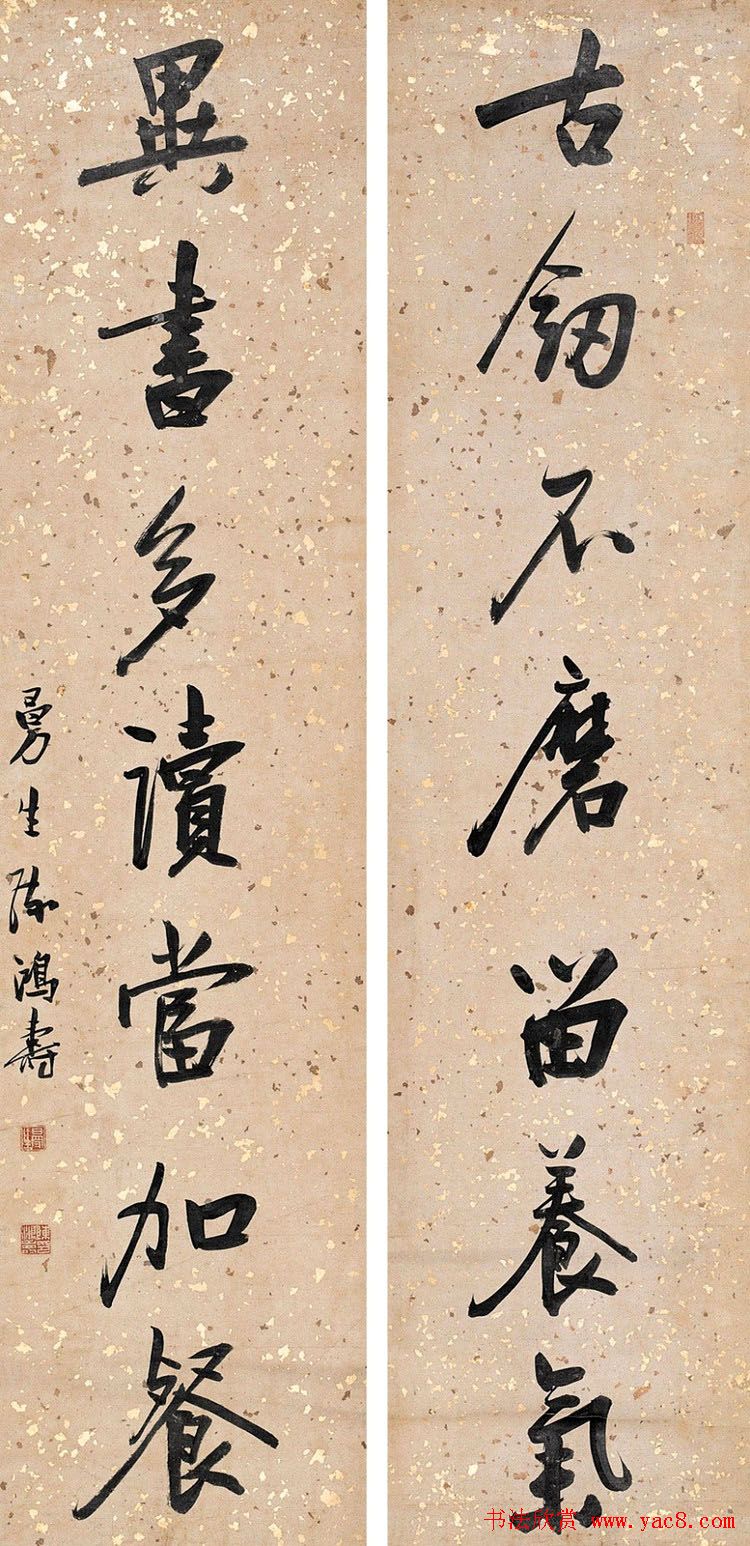 古劒不磨留養氣
異書多讀當加餐
曼生陳鴻壽
书法欣赏 www.yac8.com